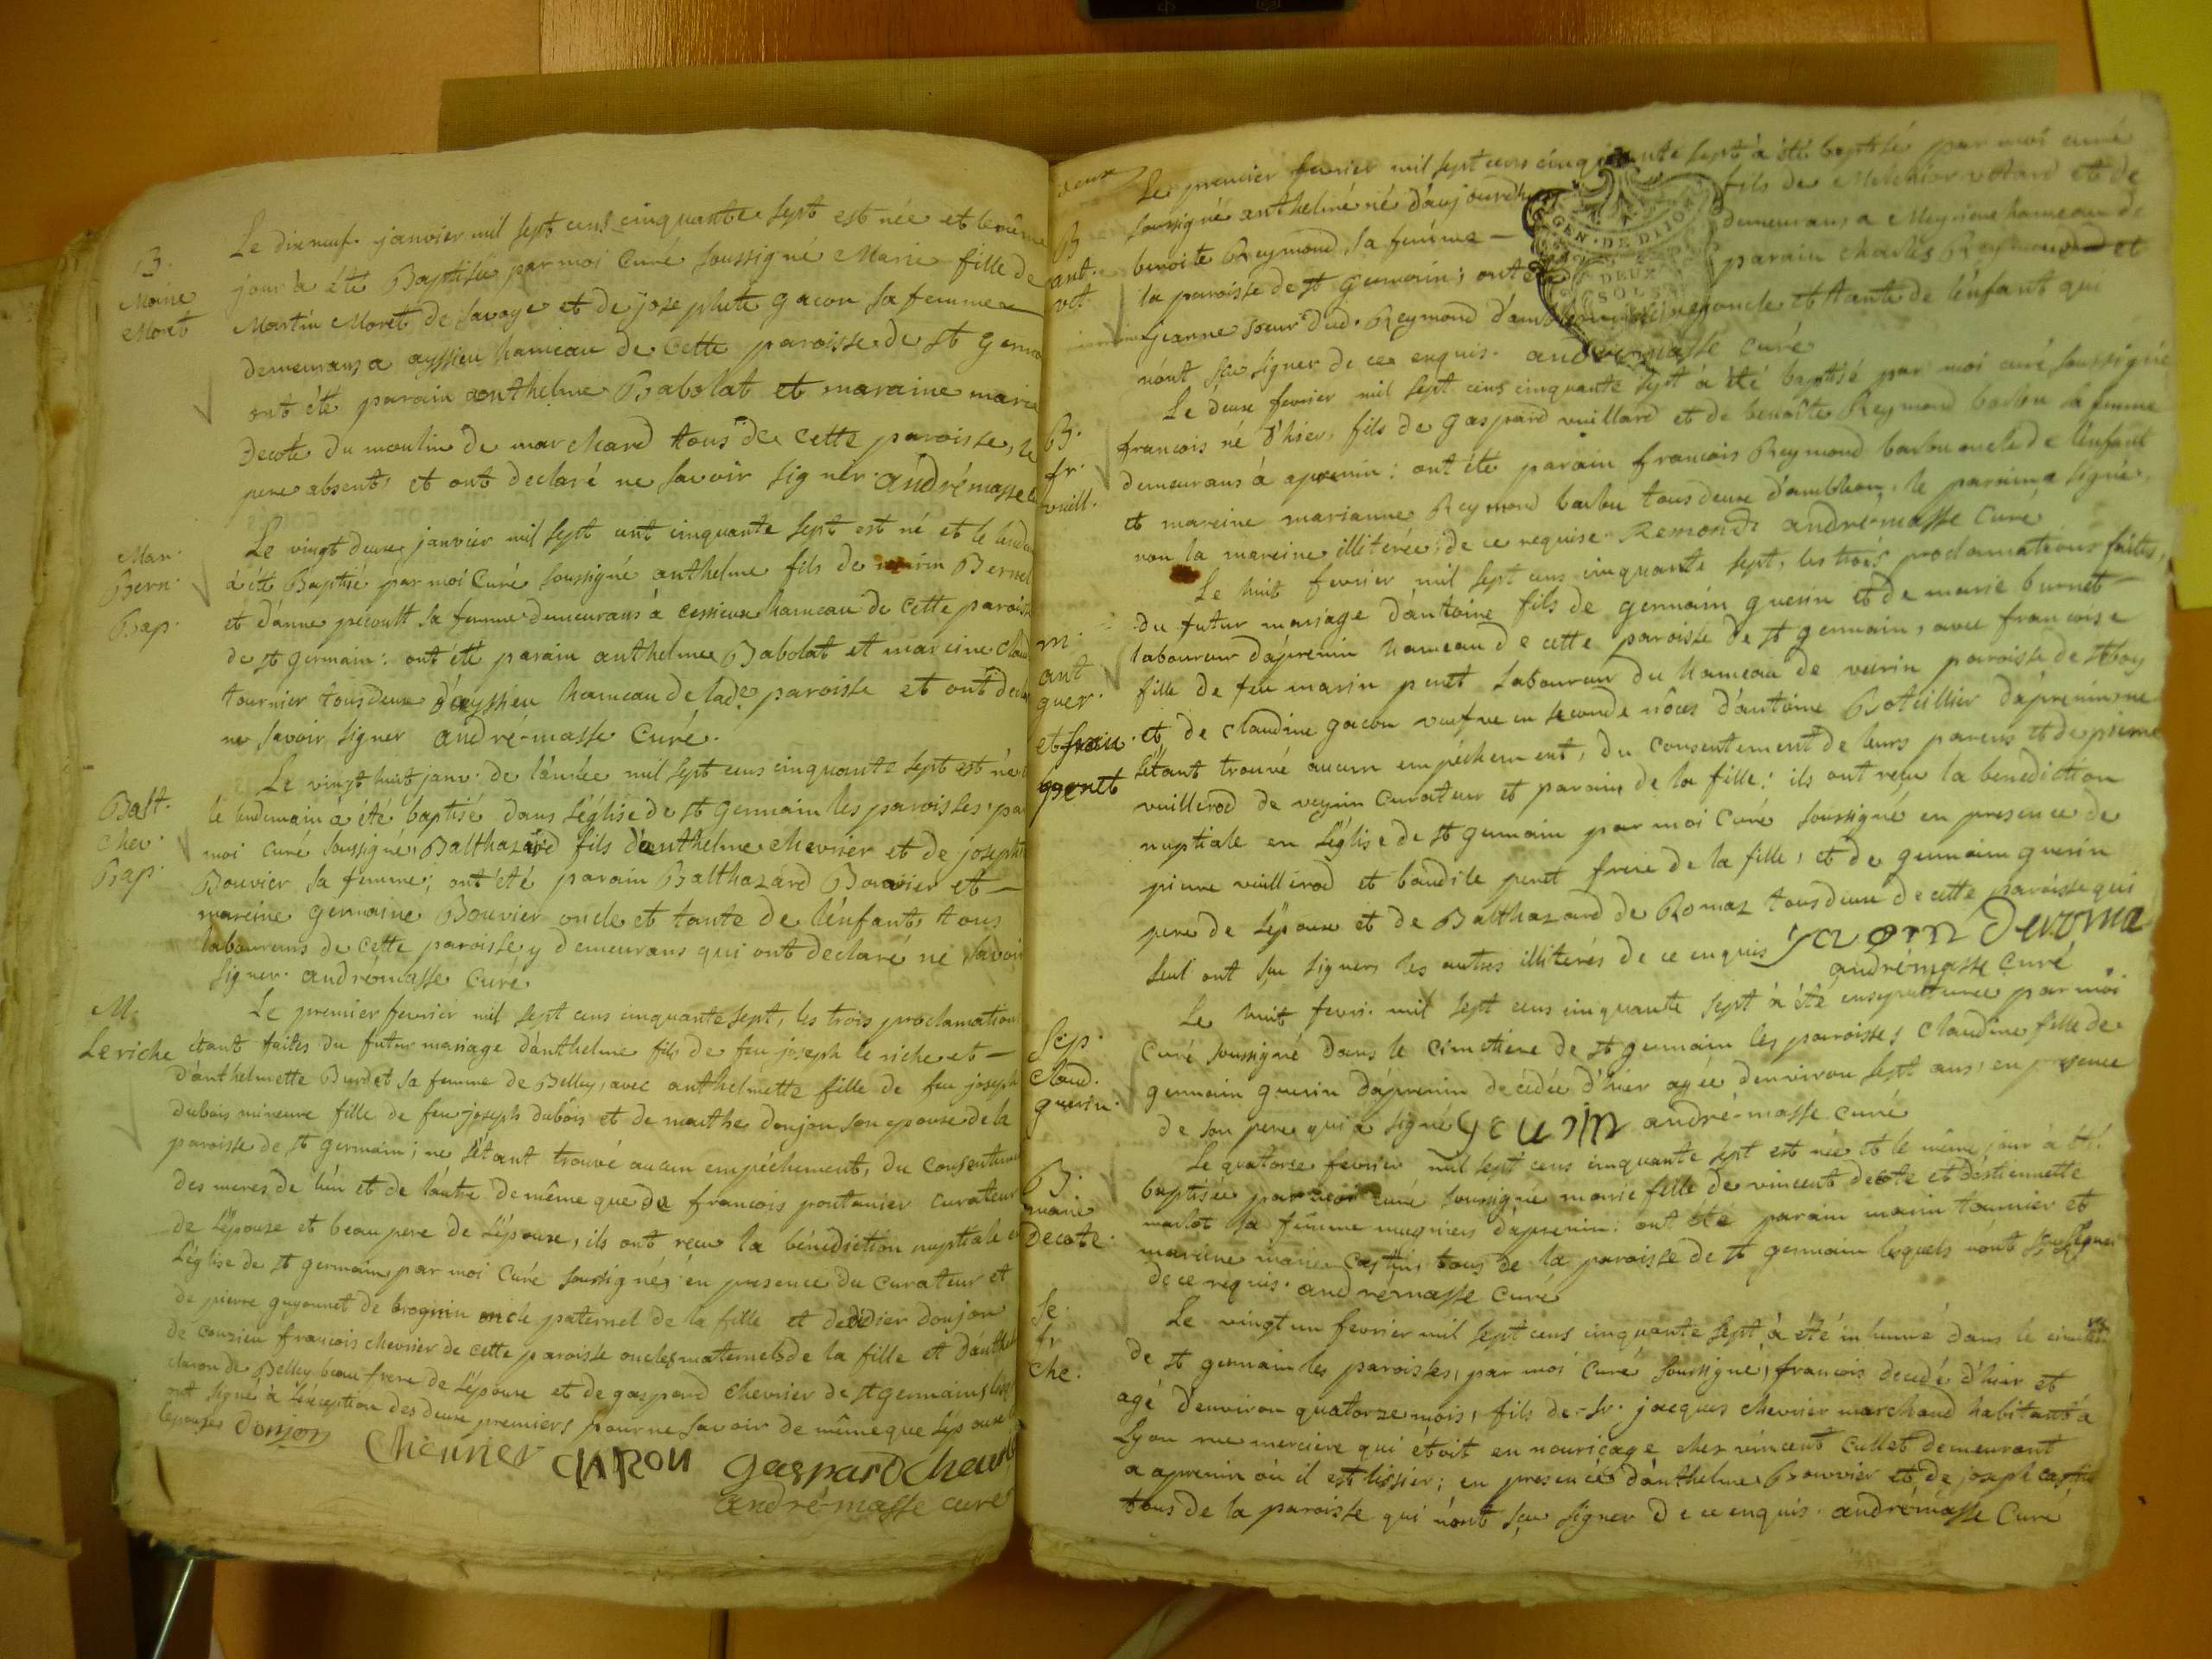 B.
Marie
Moret
Le dix neuf janvier mil sept cens cinquante sept est née et le même
jour à été Baptisée par moi Curé soussigné Marie fille de
Martin Moret de savoye et de josephete gacon sa femme
demeurans a ayssieu hameau de cette paroisse de st germ
ont été parain anthelme Babolat et maraine marie
Decote du moulin de marchand tous de cette paroisse, le
pere absent et ont declaré ne savoir signer. andrémasse
Mar.
Bern.
Bap.
Le vingt deux janvier mil sept cent cinquante sept est né et le lende
à été Baptisé par moi Curé soussigné anthelme fils de marin Bernet
et d'anne pecoult sa femme demeurans à cessieux hameau de cette paroisse
de st germain: ont été parain anthelme Babolat et mareine Claud
tournier tous deux d'ayssieu hameau de lade. paroisse et ont decla
ne savoir signer andré-masse Curé.
Balt.
Chev.
Bap.
Le vingt huit janv. de l'année mil sept cens cinquante sept est né
le lendemain à été baptisé dans l'église de st germain les paroisses par
moi curé soussigné, Balthazard fils d'anthelme chevrier et de joseph
Bouvier sa femme; ont été parain Balthazard Bouvier et
mareine germaine Bouvier oncle et tante de l'enfant, tous
laboureurs de cette paroisse y demeurans qui ont declaré ne savoir
signer. andrémasse Curé
M.
Le riche
Le premier fevrier mil sept cens cinquante sept, les trois proclamation
étant faites du futur mariage d'anthelme fils de feu joseph le riche et
d'anthelmette Burdet sa femme de Belley, avec anthelmette fille de feu joseph
dubois mineure fille de feu joseph dubois et de marthe donjon son epouse de la
paroisse de st germain; ne s'étant trouvé aucun empéchement, du consentem
des meres de l'un et de l'autre de même que de francois pontanier curateur
de l'épouse et beau pere de l'épouse, ils ont reçu la bénédiction nuptiale en
l'église de st germain, par moi Curé soussigné, en presence du curateur et
de pierre guyonnet de brognin oncle paternel de la fille et de didier donjon
de conzieu francois chevrier de cette paroisse oncles maternels de la fille et d'anthel
claron de Belley beau frere de l'épouse et de gaspard chevrier de st germain, lesq
ont signé à l'exception des deux premiers pour ne savoir de même que l'épouse
l'epouse donjon
Cheurier CLARON gaspard cheuri
andré-masse curé
deux
B
ant.
vet.
Le premier fevrier mil sept cens cinquante sept à été baptisé par moi curé
soussigné anthelme né d'aujourdhuy fils de Melchior votard et de
benoite Reymond sa femme demeurans a Meyrieu hameau de
la paroisse de st germain; ont été parain charles Reymond et
mareine jeanne soeur dud. Reymond oncle et tante de l'enfant qui
n'ont sçu signer de ce enquis. andré-masse curé
GEN · DE DIJON
DEUX
SOLS
B.
fr.
vuill.
Le deux fevrier mil sept cens cinquante sept à été baptisé par moi curé soussigné
francois né d'hier, fils de gaspard vuillard et de benoîte Reymond barbu sa femme
demeurans à aprenin: ont été parain francois Reymond barbu oncle de l'enfant
et mareine marianne Reymond barbu tous deux d'ambléon, le parain a signé,
non la mareine illitérée, de ce requise. Remond andré-masse Curé
m.
ant
guer.
et franc.
perret
Le huit fevrier mil sept cens cinquante sept, les trois proclamations faites,
du futur mariage d'antoine fils de germain guerin et de marie burnet
laboureur d'aprenin hameau de cette paroisse de st germain, avec francoise
fille de feu marin peret laboureur du hameau de veirin paroisse de st boy
et de claudine gacon veufve en seconde nôces d'antoine Botcillier d'aprenin; ne
s'étant trouvé aucun empéchement, du consentement de leurs parens et de pierre
vuillerod de veyrin curateur et parain de la fille: ils ont reçu la benediction
nuptiale en l'église de st germain par moi Curé soussigné en presence de
pierre vuillerod et baudile peret frere de la fille, et de germain guerin
pere de l'époux et de Balthazard de Romaz tous deux de cette paroisse qui
seul ont sçu signer, les autres illiterés de ce enquis
andrémasse curé
Sep.
claud.
guerin.
Le huit fevr. mil sept cens cinquante sept à été ensepulturée par moi
Curé soussigné dans le cimetière de st germain les paroisses, Claudine fille de
germain guerin d'aprenin decédée d'hier agée d'environ sept ans, en presence
de son pere qui a signé geurin andré-masse curé
B.
marie
Decote.
Le quatorze fevrier mil sept cens cinquante sept est née et le même jour à été
baptisée par moi curé soussigné marie fille de vincent decote et d'estiennette
marlot sa femme mugniers d'aprenin: ont été parain marin tournier et
mareine marie Castin, tous de la paroisse de st germain lesquels n'ont sçu signer
de ce requis. andrémasse curé
Se.
fr
Che.
Le vingt un fevrier mil sept cens cinquante sept à été inhumé dans le cimetiere
de st germain les paroisses, par moi curé soussigné, francois decedé d'hier et
agé d'environ quatorze mois, fils de sr. jacques chevrier marchand habitant à
Lyon rue merciere qui étoit en nouricage chez vincent Cullet demeurant
a aprenin où il est tissier; en presence d'anthelme Bouvier et de joseph castin
tous de la paroisse qui n'ont sçu signer de ce enquis. andrémasse Curé